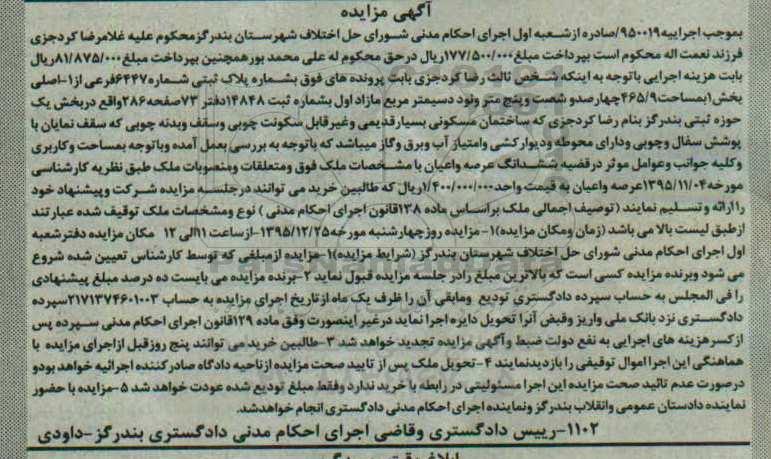 آگهی مزایده
بموجب اجراییه ۹۵۰۰۱۹/صادره ازشعبه اول اجرای احکام مدنی شورای حل اختلاف شهرستان بندرگزمحکوم علیه غلامرضا کردجزی
فرزند نعمت اله محکوم است بپرداخت مبلغ۱۷۷/۵۰۰/۰۰۰ریال درحق محکوم له علی محمد بورهمچنین بپرداخت مبلغ۸۱/۸۷۵/۰۰۰ریال
بابت هزینه اجرایی باتوجه به اینکه شخص ثالث رضا کردجزی بابت پرونده های فوق بشماره پلاک ثبتی شماره۶۴۴۷فرعی از۱-اصلی
بخش۱بمساحت۴۶۵/۹چهارصدو شصت وپنج متر ونود دسیمتر مربع مازاد اول بشماره ثبت ۱۴۸۴۸دفتر ۷۳صفحه۲۸۶واقع دربخش یک
حوزه ثبتی بندرگز بنام رضا کردجزی که ساختمان مسکونی بسیارقدیمی وغیرقابل سکونت چوبی وسقف وبدنه چوبی که سقف نمایان با
پوشش سفال وچوبی ودارای محوطه ودیوارکشی وامتیاز آب وبرق وگاز میباشد که باتوجه به بررسی بعمل آمده وباتوجه بمساحت وکاربری
وکلیه جوانب وعوامل موثر درقضیه ششدانگ عرصه واعیان با مشخصات ملک فوق ومتعلقات ومنصوبات ملک طبق نظریه کارشناسی
مورخه۱۳۹۵/۱۱/۰۴عرصه واعیان به قیمت واحد۱/۴۰۰/۰۰۰/۰۰۰ریال که طالبین خرید می توانند درجلسه مزایده شرکت وپیشنهاد خود
را ارائه وتسلیم نمایند (توصیف اجمالی ملک براساس ماده ۱۳۸قانون اجرای احکام مدنی ) نوع ومشخصات ملک توقیف شده عبارتند
ازطبق لیست بالا می باشد (زمان ومکان مزایده)۱-مزایده روزچهارشنبه مورخه۱۳۹۵/۱۲/۲۵-ازساعت ۱۱الی ۱۲ مکان مزایده دفترشعبه
اول اجرای احکام مدنی شورای حل اختلاف شهرستان بندرگز (شرایط مزایده)۱-مزایده ازمبلغی که توسط کارشناس تعیین شده شروع
می شود وبرنده مزایده کسی است که بالاترین مبلغ رادر جلسه مزایده قبول نماید ۲-برنده مزایده می بایست ده درصد مبلغ پیشنهادی
را فی المجلس به حساب سپرده دادگستری تودیع ومابقی آن را ظرف یک ماه ازتاریخ اجرای مزایده به حساب ۲۱۷۱۳۷۴۶۰۱۰۰۳سپرده
دادگستری نزد بانک ملی واریز وقبض آنرا تحویل دایره اجرا نماید درغیر اینصورت وفق ماده ۱۲۹قانون اجرای احکام مدنی سپرده پس
ازکسرهزینه های اجرایی به نفع دولت ضبط وآگهی مزایده تجدید خواهد شد ۳-طالبین خرید می توانند پنج روزقبل ازاجرای مزایده با
هماهنگی این اجرا اموال توقیفی را بازدیدنمایند ۴-تحویل ملک پس از تایید صحت مزایده ازناحیه دادگاه صادرکننده اجرائیه خواهد بودو
درصورت عدم تائید صحت مزایده این اجرا مسئولیتی در رابطه با خرید ندارد وفقط مبلغ تودیع شده عودت خواهد شد ۵-مزایده با حضور
نماینده دادستان عمومی وانقلاب بندرگز ونماینده اجرای احکام مدنی دادگستری انجام خواهدشد.
۱۱۰۲-رییس دادگستری وقاضی اجرای احکام مدنی دادگستری بندرگز-داودی